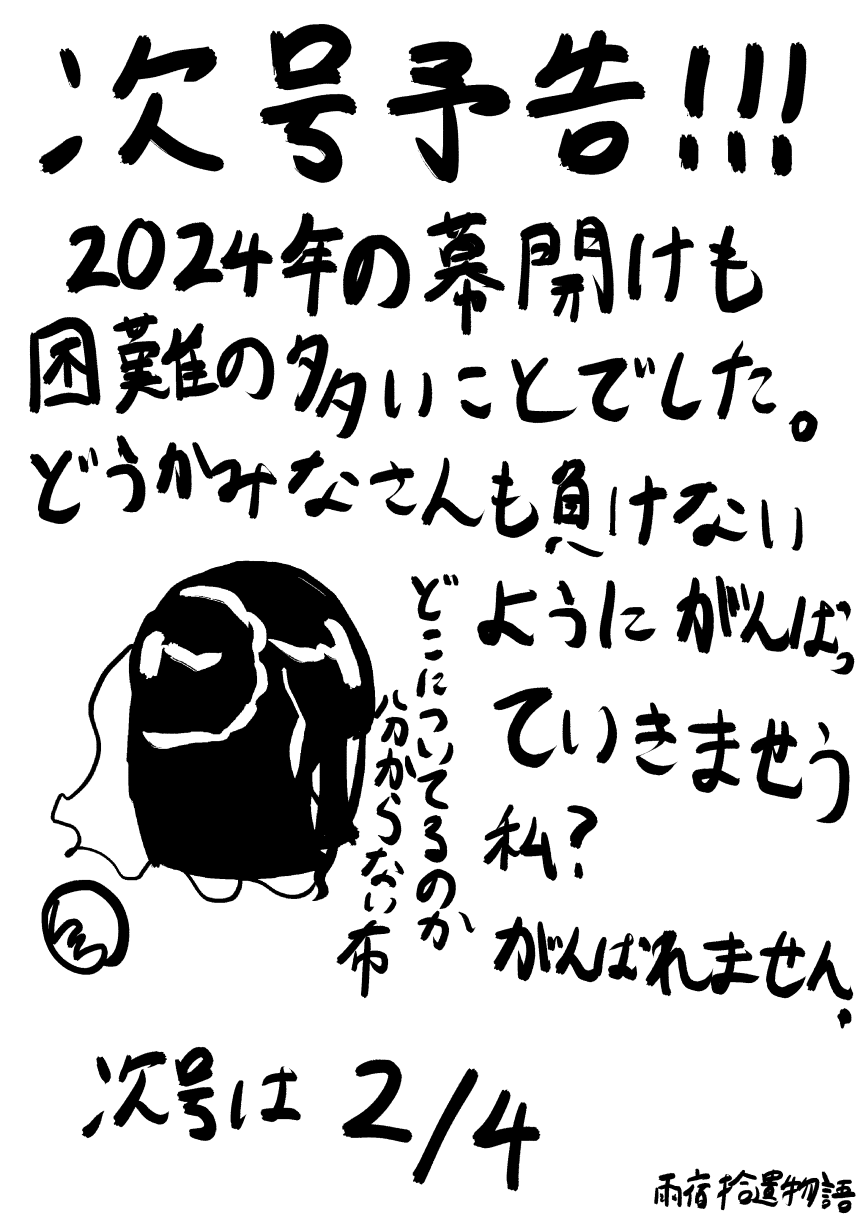 次号予告!!!
2024年の幕開けも
困難の多いことでした。
どうかみなさんも負けない
ようにがんばっ
ていきませう
私?
がんばれません.
どこについてるのか
分からない布
次号は 2/4
雨宿拾遺物語